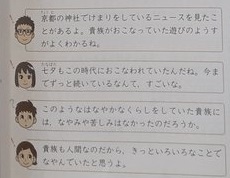 京都の神社でけまりをしているニュースを見た
ことがあるよ。貴族がおこなっていた遊びのようす
がよくわかるね。
七夕もこの時代におこなわれていたんだね。今ま
でずっと続いているなんて、すごいな。
このようなはなやかなくらしをしていた貴族に
は、なやみや苦しみはなかったのだろうか。
貴族も人間なのだから、きっといろいろなことで
なやんでいたと思うよ。